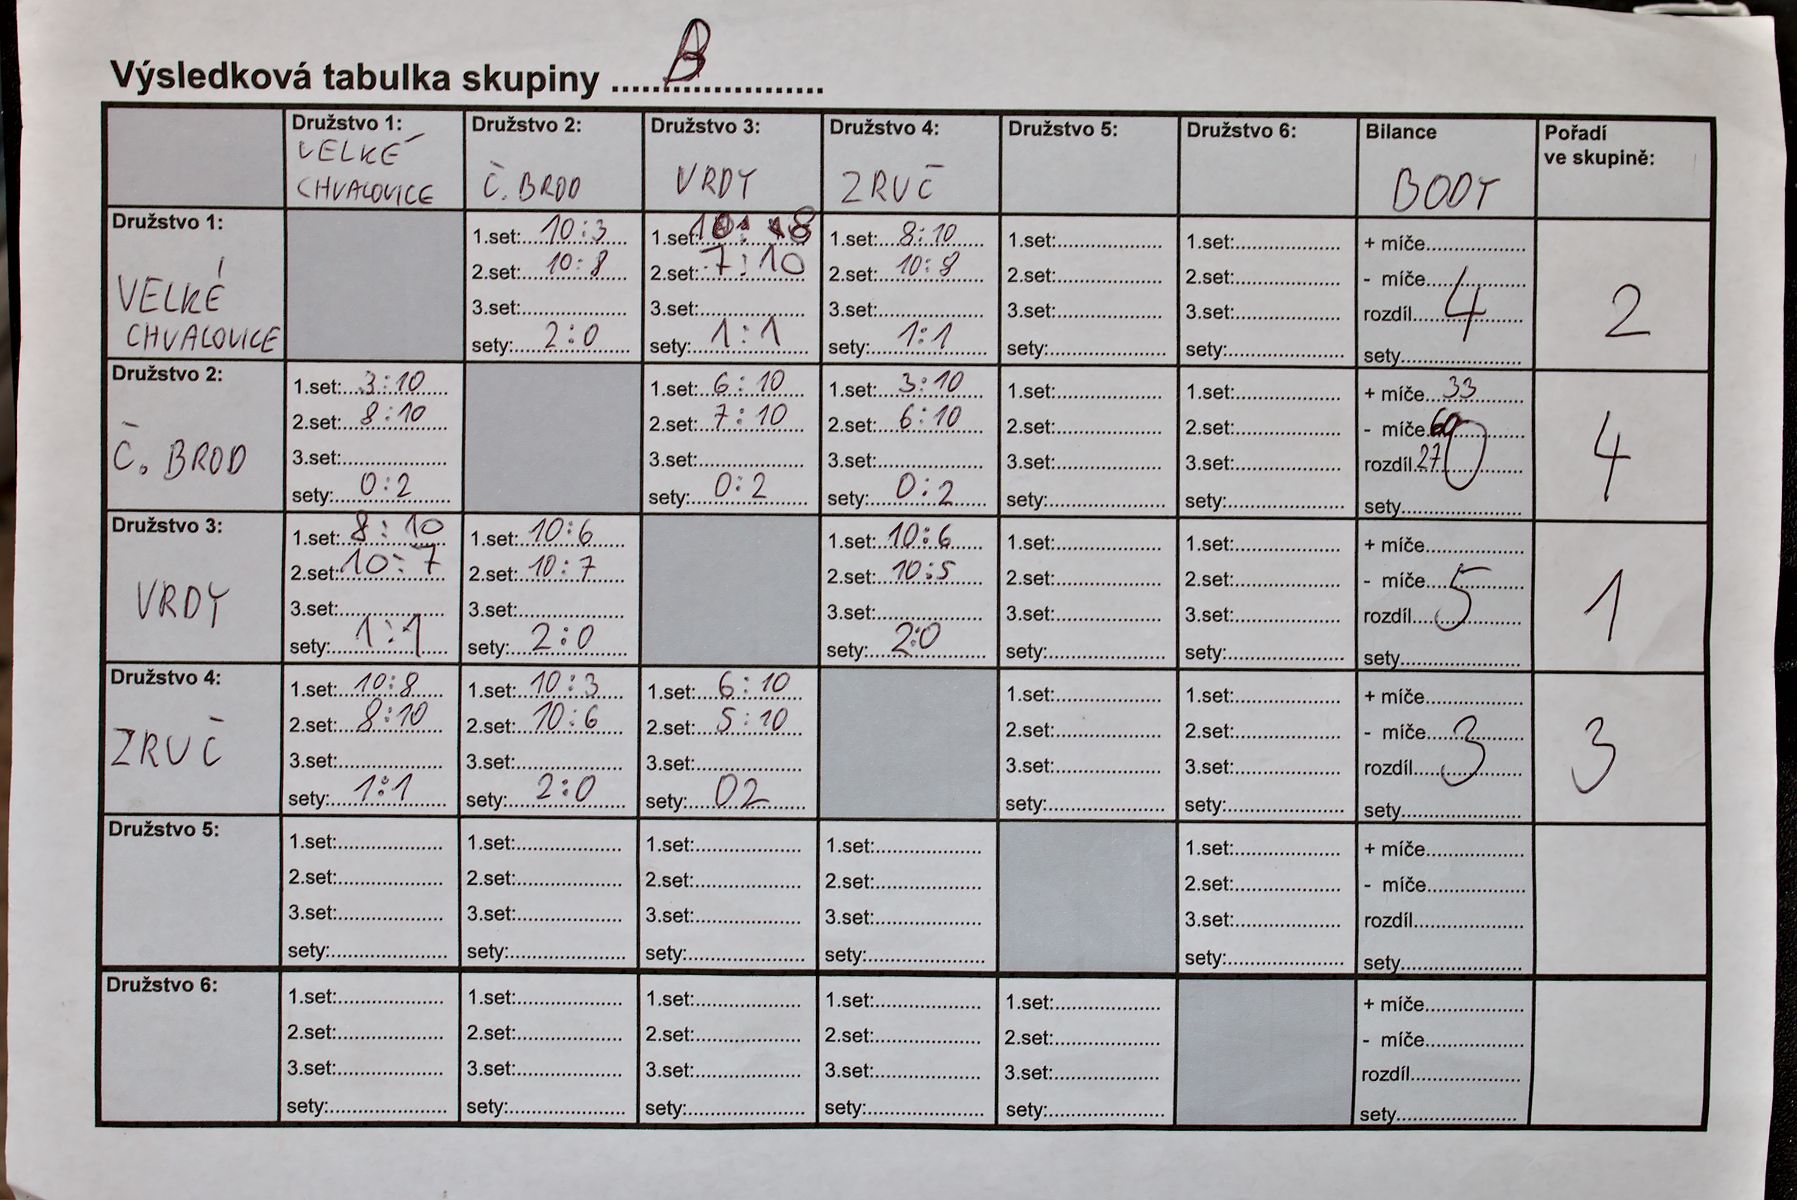 Výsledková tabulka skupiny ..................... B
Družstvo 1: VELKÉ CHVALOVICE
Družstvo 2: Č. BROD
Družstvo 3: VRDY
Družstvo 4: ZRUČ
Družstvo 5:
Družstvo 6:
Bilance BODY
Pořadí ve skupině:
Družstvo 1:
VELKÉ
CHVALOVICE
1.set: 10:3
2.set: 10:8
3.set:
sety: 2:0
1.set: 10:8
2.set: 7:10
3.set:
sety: 1:1
1.set: 8:10
2.set: 10:8
3.set:
sety: 1:1
1.set:
2.set:
3.set:
sety:
1.set:
2.set:
3.set:
sety:
+ míče
- míče
rozdíl
sety
4
2
Družstvo 2:
Č. BROD
1.set: 3:10
2.set: 8:10
3.set:
sety: 0:2
1.set: 6:10
2.set: 7:10
3.set:
sety: 0:2
1.set: 3:10
2.set: 6:10
3.set:
sety: 0:2
1.set:
2.set:
3.set:
sety:
1.set:
2.set:
3.set:
sety:
+ míče 33
- míče 60
rozdíl 27
sety
0
4
Družstvo 3:
VRDY
1.set: 8:10
2.set: 10:7
3.set:
sety: 1:1
1.set: 10:6
2.set: 10:7
3.set:
sety: 2:0
1.set: 10:6
2.set: 10:5
3.set:
sety: 2:0
1.set:
2.set:
3.set:
sety:
1.set:
2.set:
3.set:
sety:
+ míče
- míče
rozdíl
sety
5
1
Družstvo 4:
ZRUČ
1.set: 10:8
2.set: 8:10
3.set:
sety: 1:1
1.set: 10:3
2.set: 10:6
3.set:
sety: 2:0
1.set: 6:10
2.set: 5:10
3.set:
sety: 02
1.set:
2.set:
3.set:
sety:
1.set:
2.set:
3.set:
sety:
+ míče
- míče
rozdíl
sety
3
3
Družstvo 5:
1.set:
2.set:
3.set:
sety:
1.set:
2.set:
3.set:
sety:
1.set:
2.set:
3.set:
sety:
1.set:
2.set:
3.set:
sety:
1.set:
2.set:
3.set:
sety:
+ míče
- míče
rozdíl
sety
Družstvo 6:
1.set:
2.set:
3.set:
sety:
1.set:
2.set:
3.set:
sety:
1.set:
2.set:
3.set:
sety:
1.set:
2.set:
3.set:
sety:
1.set:
2.set:
3.set:
sety:
+ míče
- míče
rozdíl
sety